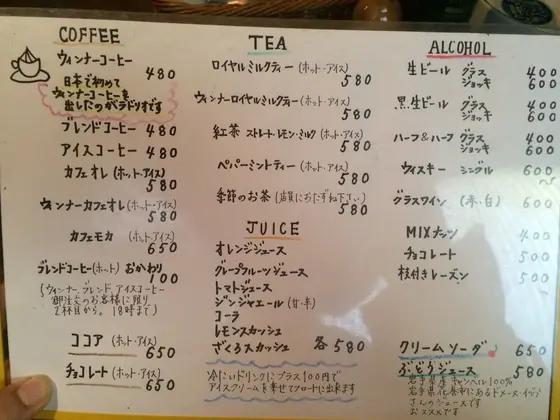 COFFEE
ウィンナーコーヒー 480
日本で初めて
ウィンナーコーヒーを
出したのがラドリオです
ブレンドコーヒー 480
アイスコーヒー 480
カフェオレ (ホット・アイス)
580
ウィンナーカフェオレ (ホット・アイス)
580
カフェモカ (ホット・アイス)
650
ブレンドコーヒー(ホット) おかわり
100
(ウィンナー、ブレンド、アイスコーヒー
御注文のお客様に限り
2杯目から。18時まで)
ココア (ホット・アイス)
650
チョコレート (ホット・アイス)
650
TEA
ロイヤルミルクティー (ホット・アイス)
580
ウィンナーロイヤルミルクティー (ホット・アイス)
580
紅茶 ストレート・レモン・ミルク (ホット・アイス)
580
ペパーミントティー (ホット・アイス)
580
季節のお茶 (店員におたずね下さい)
580
JUICE
オレンジジュース
グレープフルーツジュース
トマトジュース
ジンジャエール (甘・辛)
コーラ
レモンスカッシュ
ざくろスカッシュ 各 580
冷たいドリンクにプラス100円で
アイスクリームを乗せてフロートに出来ます
ALCOHOL
生ビール グラス 400
ジョッキ 600
黒生ビール グラス 400
ジョッキ 600
ハーフ&ハーフ グラス 400
ジョッキ 600
ウィスキー シングル 600
グラスワイン (赤・白) 600
MIXナッツ 400
チョコレート 500
枝付きレーズン 500
クリームソーダ 650
ぶどうジュース 580
岩手県産キャンベル100%
岩手県花巻市にあるドメーヌ・
さんのジュースです
おススメです